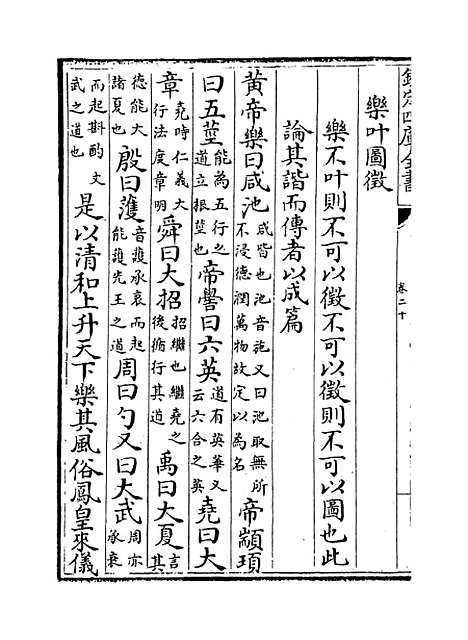 欽定四庫全書
卷二十
樂叶圖徵
樂不叶則不可以徵不可以徵則不可以圖也此
論其諧而傳者以成篇
黄帝樂曰咸池咸皆也池音施又曰池取無所不浸德潤萬物故定以為名帝顓頊
曰五莖能為五行之道立根莖也帝嚳曰六英道有英華又云六合之英堯曰大
章堯時仁義大行法度章明舜曰大招招繼也繼堯之後循行其道禹曰大夏言其
德能大諸夏也殷曰頀音護承衰而起能護先王之道周曰勺又曰大武周亦承衰
而起斟酌文武之道也是以清和上升天下樂其風俗鳳皇來儀